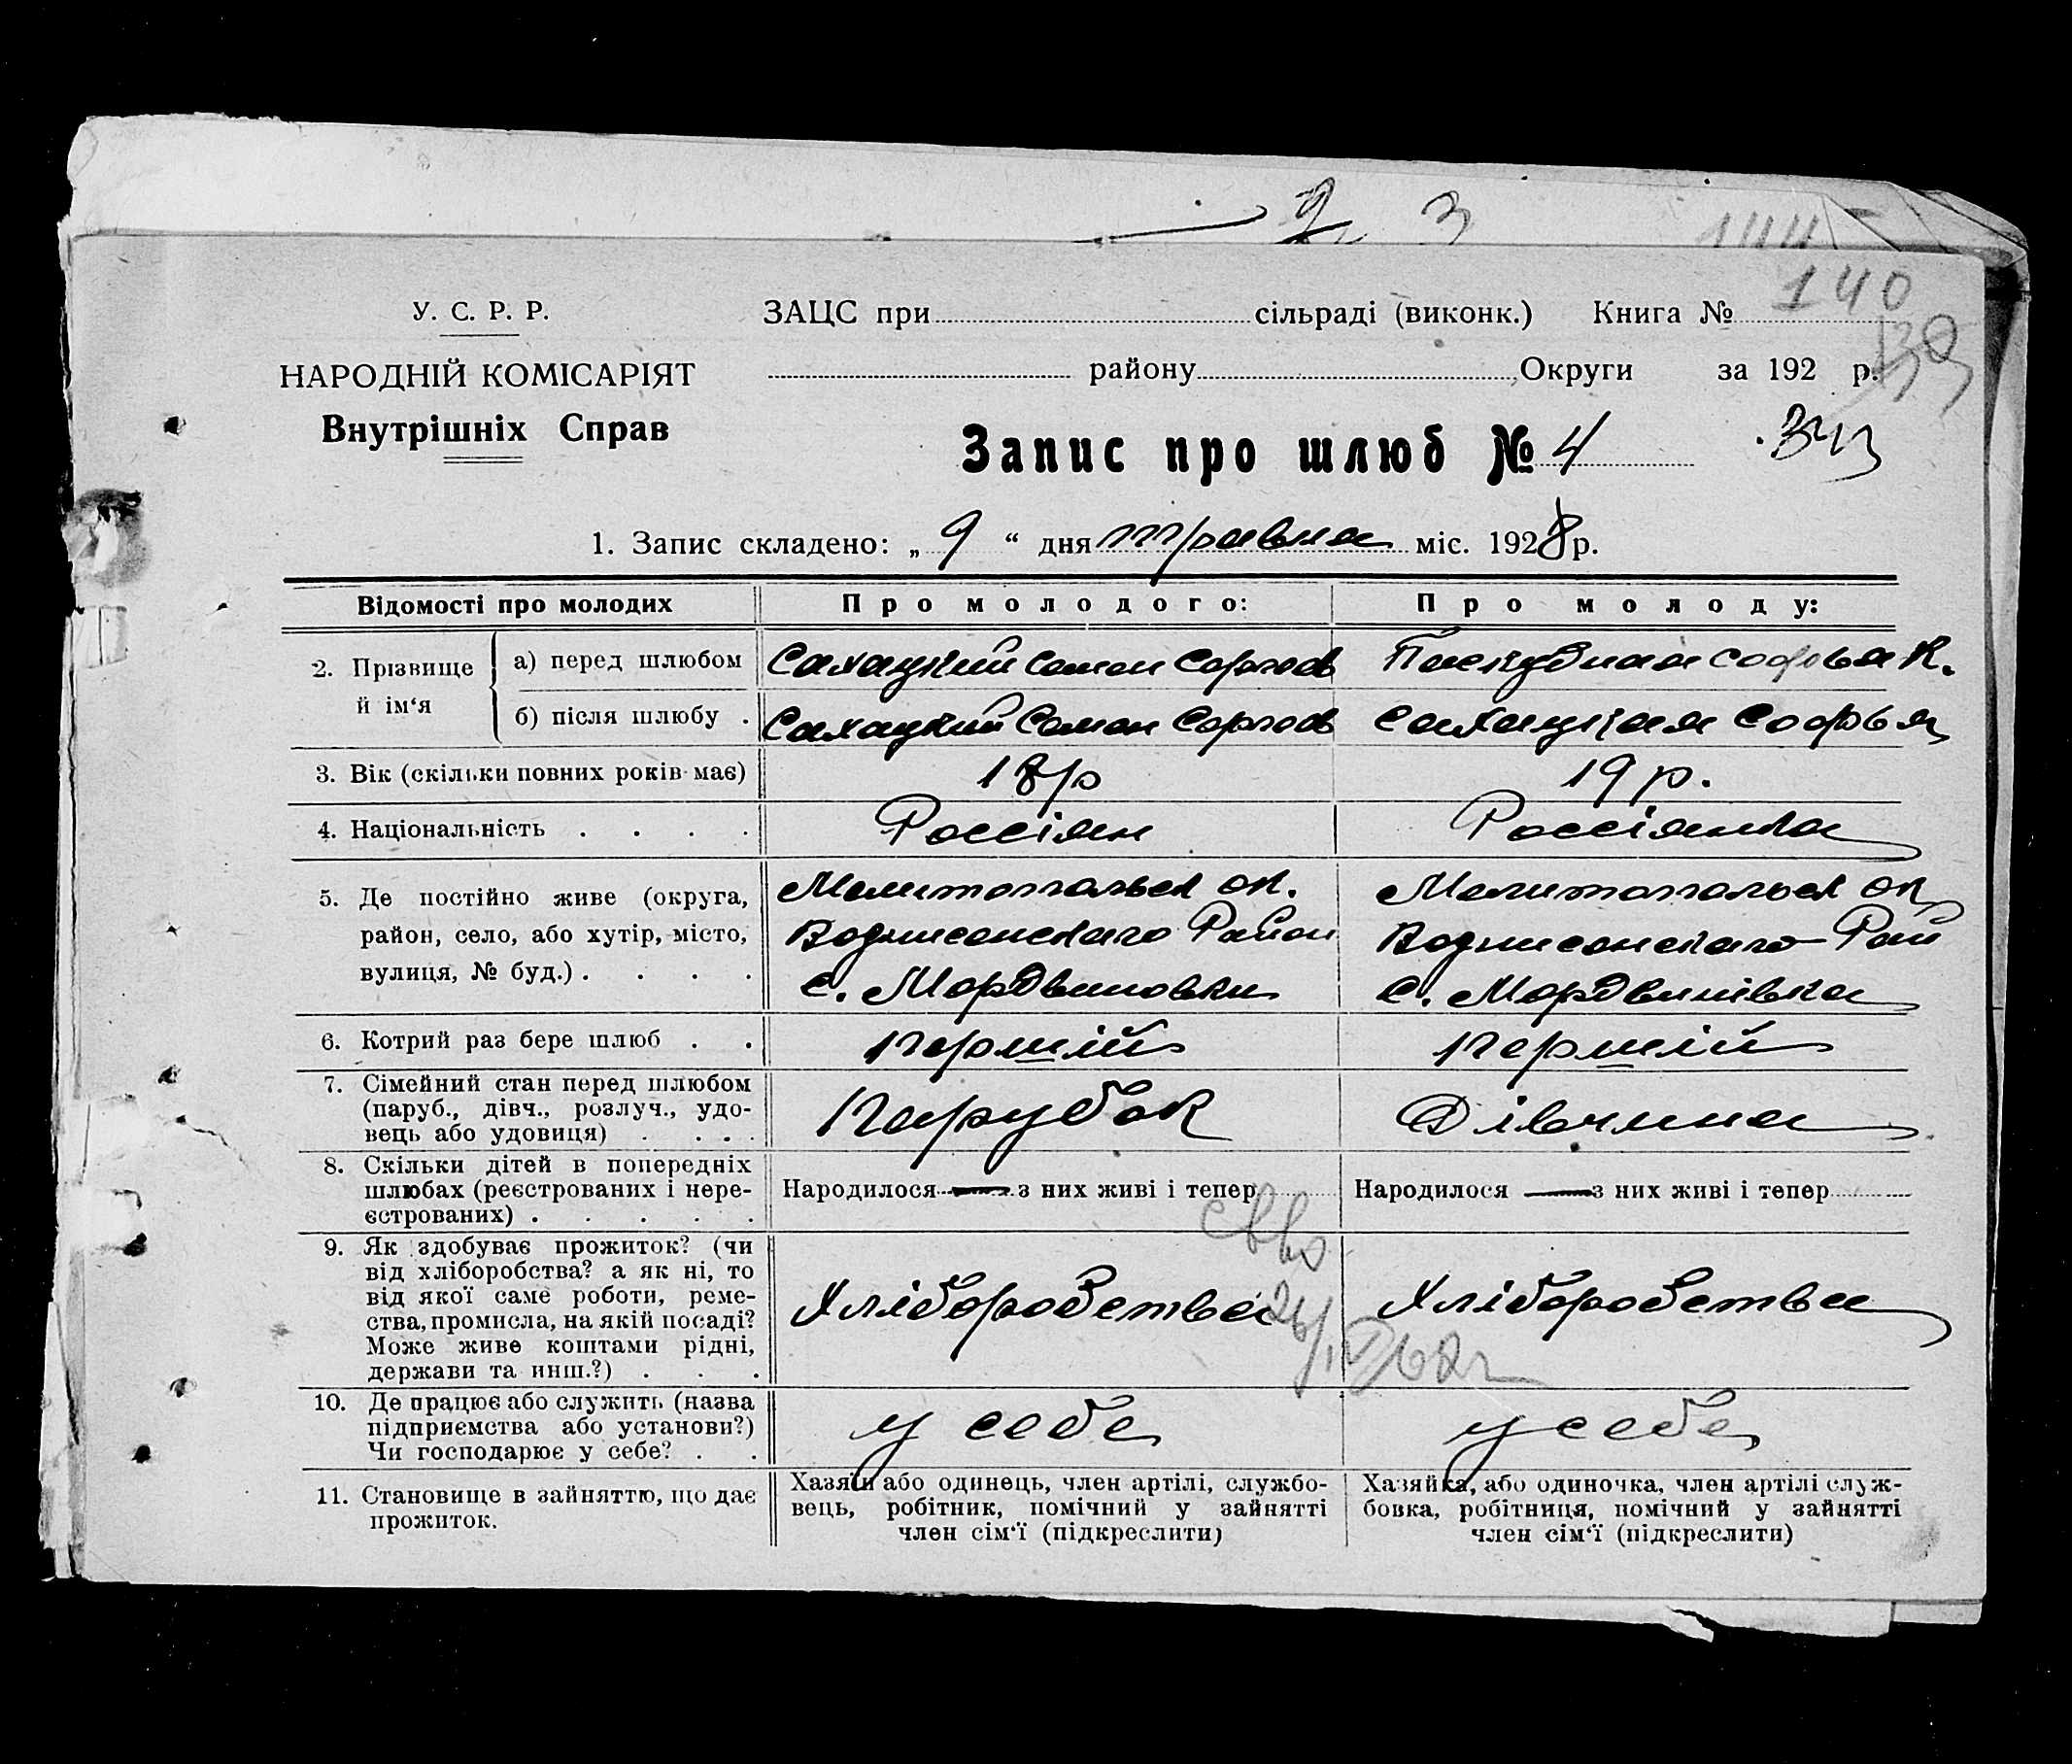 2 3
144
140
139
У. С. Р. Р. ЗАЦС при сільраді (виконк.) Книга №
НАРОДНІЙ КОМІСАРІЯТ району Округи за 192 р.
Внутрішніх Справ
Запис про шлюб № 4 343
1. Запис складено: „ 9 “ дня травня міс. 1928 р.
Відомості про молодих Про молодого: Про молоду:
2. Прізвище й ім‘я
а) перед шлюбом Сахацкий Семен Сергеев Паскубная Софья К.
б) після шлюбу . Сахацкий Семен Сергеев Сахацкая Софья
3. Вік (скільки повних років має) 18 р 19 р.
4. Національність . . . . Россіян Россіянка
5. Де постійно живе (округа, Мелитопольск ок. Мелитопольск ок
район, село, або хутір, місто, Вознесенскаго Район Вознесенскаго Рай
вулиця, № буд.) . . . . с. Мордвиновки с. Мордвинівка
6. Котрий раз бере шлюб . . першій першій
7. Сімейний стан перед шлюбом
(паруб., дівч., розлуч., удо- Парубок Дівчина
вець або удовиця) . . . .
8. Скільки дітей в попередніх
шлюбах (реєстрованих і нере- Народилося — з них живі і тепер Народилося — з них живі і тепер
єстрованих) . . . . .
9. Як здобуває прожиток? (чи
від хліборобства? а як ні, то
від якої саме роботи, реме- Хліборобства Хліборобства
ства, промисла, на якій посаді?
Може живе коштами рідні,
держави та инш.?) . . .
св во
26/IV 62 г
10. Де працює або служить (назва
підприємства або установи?) у себе у себе
Чи господарює у себе? . .
11. Становище в зайняттю, що дає прожиток.
Хазяїн або одинець, член артілі, службо- Хазяйка, або одиночка, член артілі служ-
вець, робітник, помічний у зайнятті бовка, робітниця, помічний у зайнятті
член сім‘ї (підкреслити) член сім‘ї (підкреслити)